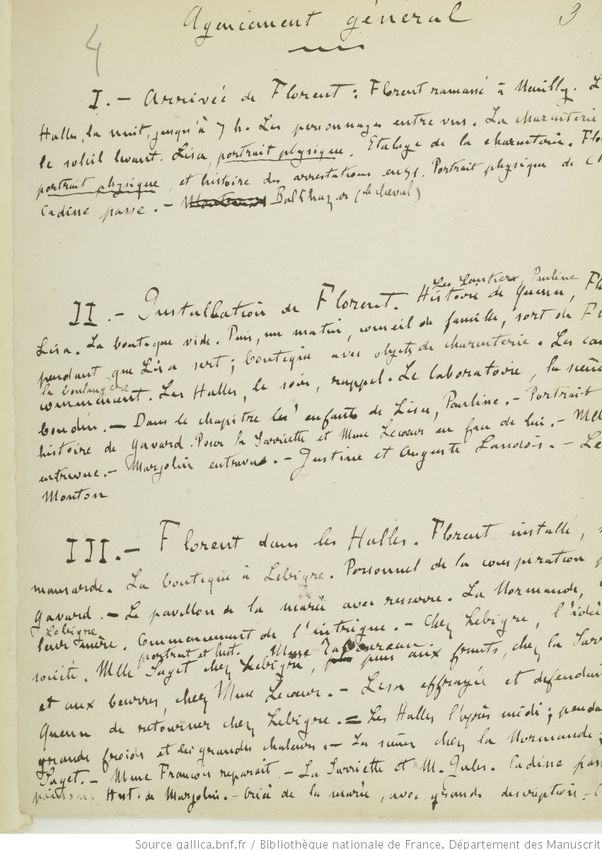 4
Agencement général
3
I. — Arrivée de Florent : Florent ramassé à Neuilly. L
Halles, la nuit, jusqu'à 7 h. Les personnages entrevus. La charcuterie
le soleil levant. Lisa, portrait physique. Etalage de la charcuterie. Flo
portrait physique, et histoire des arrestations . Portrait physique de C
Cadine passe. — Balthazar (le cheval)
Les Lantier, Pauline
II. — Installation de Florent. Histoire de Quenu, Fl
Lisa. La boutique vide. Puis, un matin, conseil de famille, sort de F
pendant que Lisa sert ; boutique avec objets de charcuterie. Les
la boulangère
commencent. Les Halles, le soir, rappel. Le laboratoire, la scène
boudin. — Dans le chapitre les enfants de Lisa, Pauline. — Portrait
histoire de Gavard. Poser la Sarriette et Mme Lecœur en face de lui. — Mlle
entrevue. — Marjolin entrevu. — Justine et Auguste Landois. — Le
Mouton
III. — Florent dans les Halles. Florent installé,
mansarde. La boutique à Lebigre. Personnel de la conspiration
Gavard. — Le pavillon de la marée avec resserre. La Normande,
Lebigre
leur mère. Commencement de l'intrigue. — Chez Lebigre, l'idée
portrait et hist.
société. Mlle Saget chez Lebigre, puis aux fruits, chez la Sarr
et aux beurres, chez Mme Lecœur. — Lisa effrayée et défendant
Quenu de retourner chez Lebigre. = Les Halles l'après midi ; penda
grands froids et les grandes chaleurs. — La scène chez la Normande ;
Saget. — Mme François reparait. — La Sarriette et M. Jules. Cadine pas
Hist. de Marjolin. — Criée de la marée, avec grande description. —
Source gallica.bnf.fr / Bibliothèque nationale de France. Département des Manuscrit